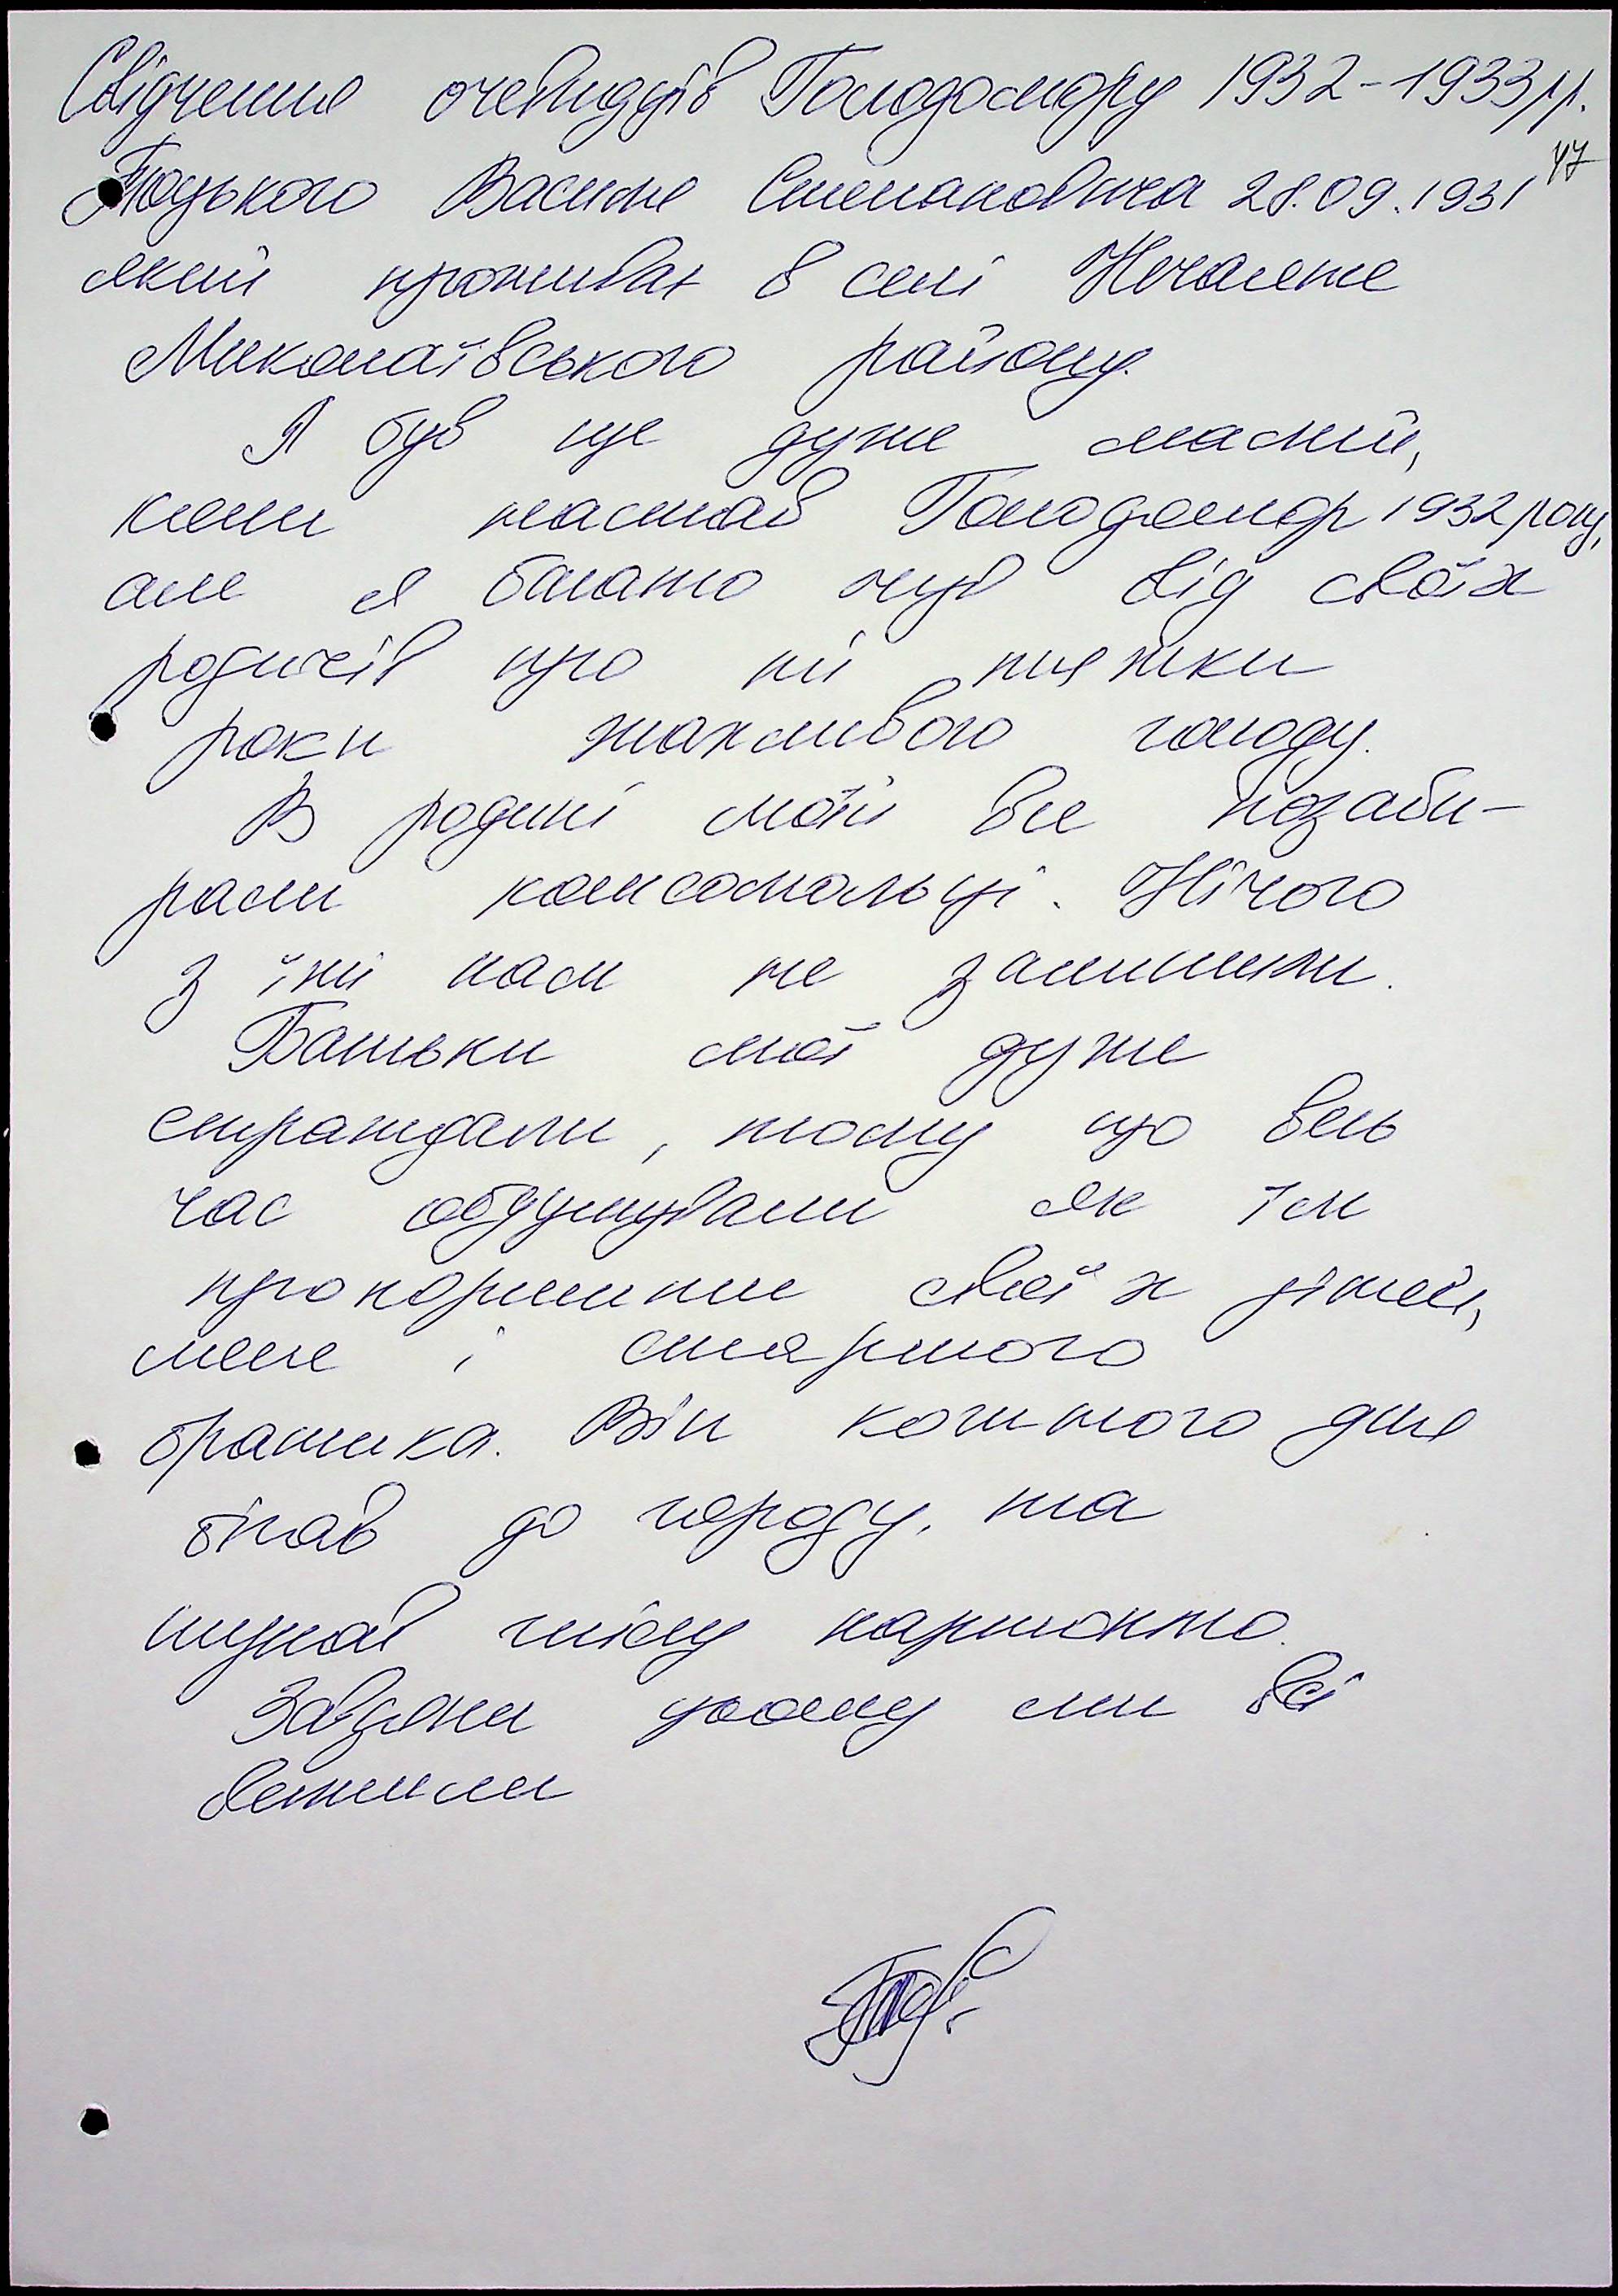 Свідчення очевидців Голодомору 1932-1933 рр.
47
Троцького Василя Степановича 28.09.1931
який проживає в селі Нечаяне
Миколаївського району.
Я був ще дуже малий,
коли настав Голодомор 1932 року,
але я багато чув від своїх
родичів про ті тяжки
роки жахливого голоду.
В родині моїй все позаби-
рали комсомольці. Нічого
з їжі нам не залишили.
Батьки мої дуже
страждали, тому що весь
час обдумували як їм
прокормити своїх дітей,
мене і старшого
братика. Він кожного дня
бігав до городу, та
шукав гнілу картоплю.
Завдяки цьому ми всі
вежили